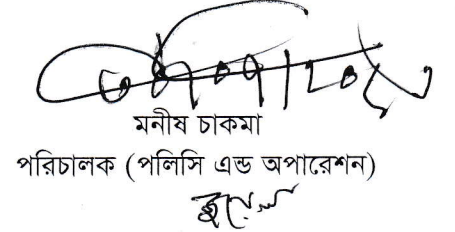 মনীষ চাকমা
পরিচালক (পলিসি এন্ড অপারেশন)